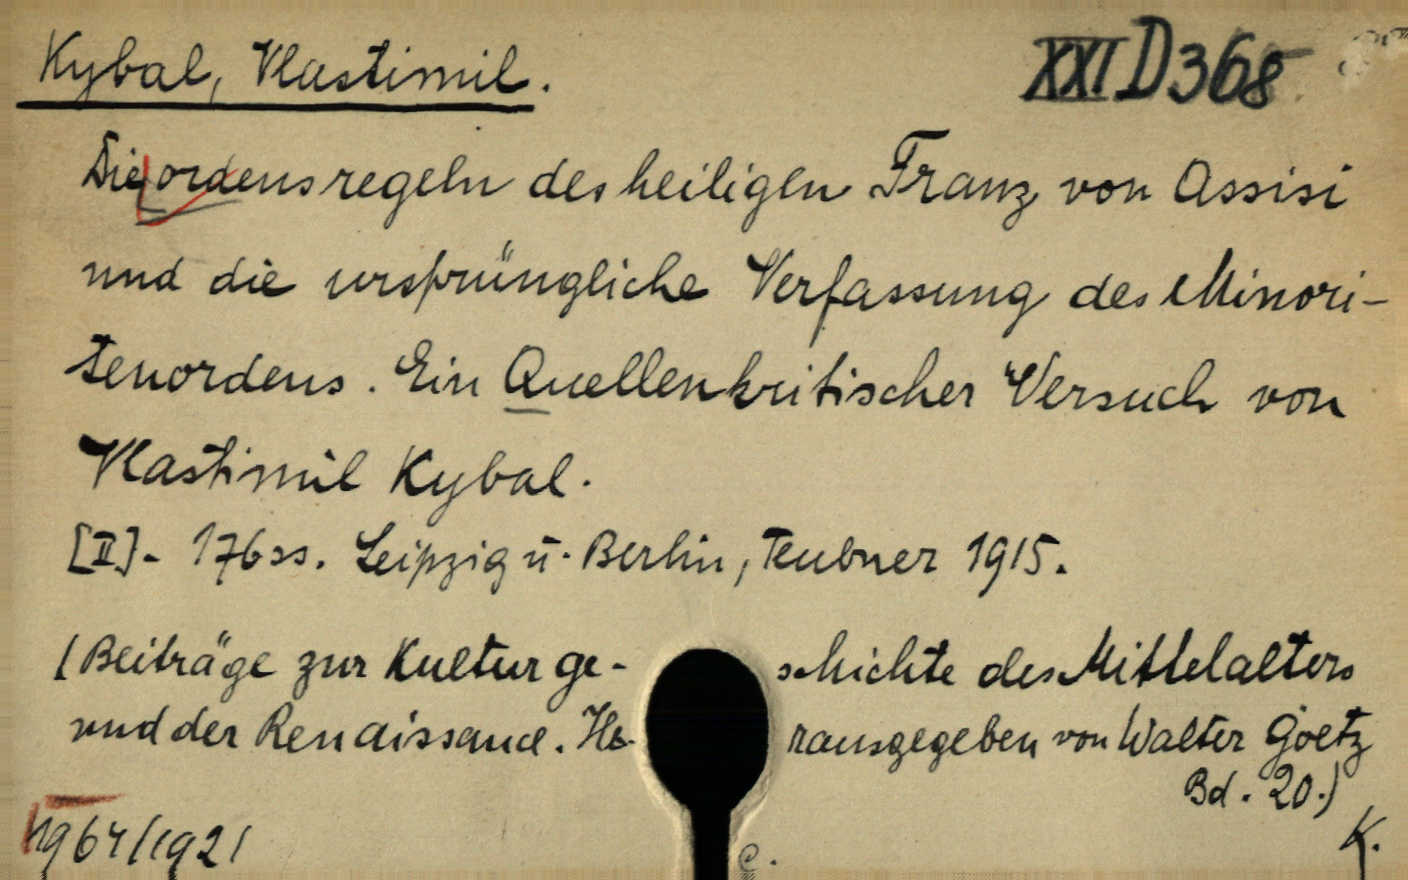 Kybal, Vlastimil.
XXI D 368
Die ordensregeln des heiligen Franz von Assisi
und die ursprüngliche Verfassung des Minori-
tenordens. Ein Quellenkritischer Versuch von
Vlastimil Kybal.
[II]- 176 ss. Leipzig u. Berlin, Teubner 1915.
(Beiträge zur Kulturge- schichte des Mittelalters
und der Renaissance. He- rausgegeben von Walter Goetz
Bd. 20.)
1964/1921
C.
K.